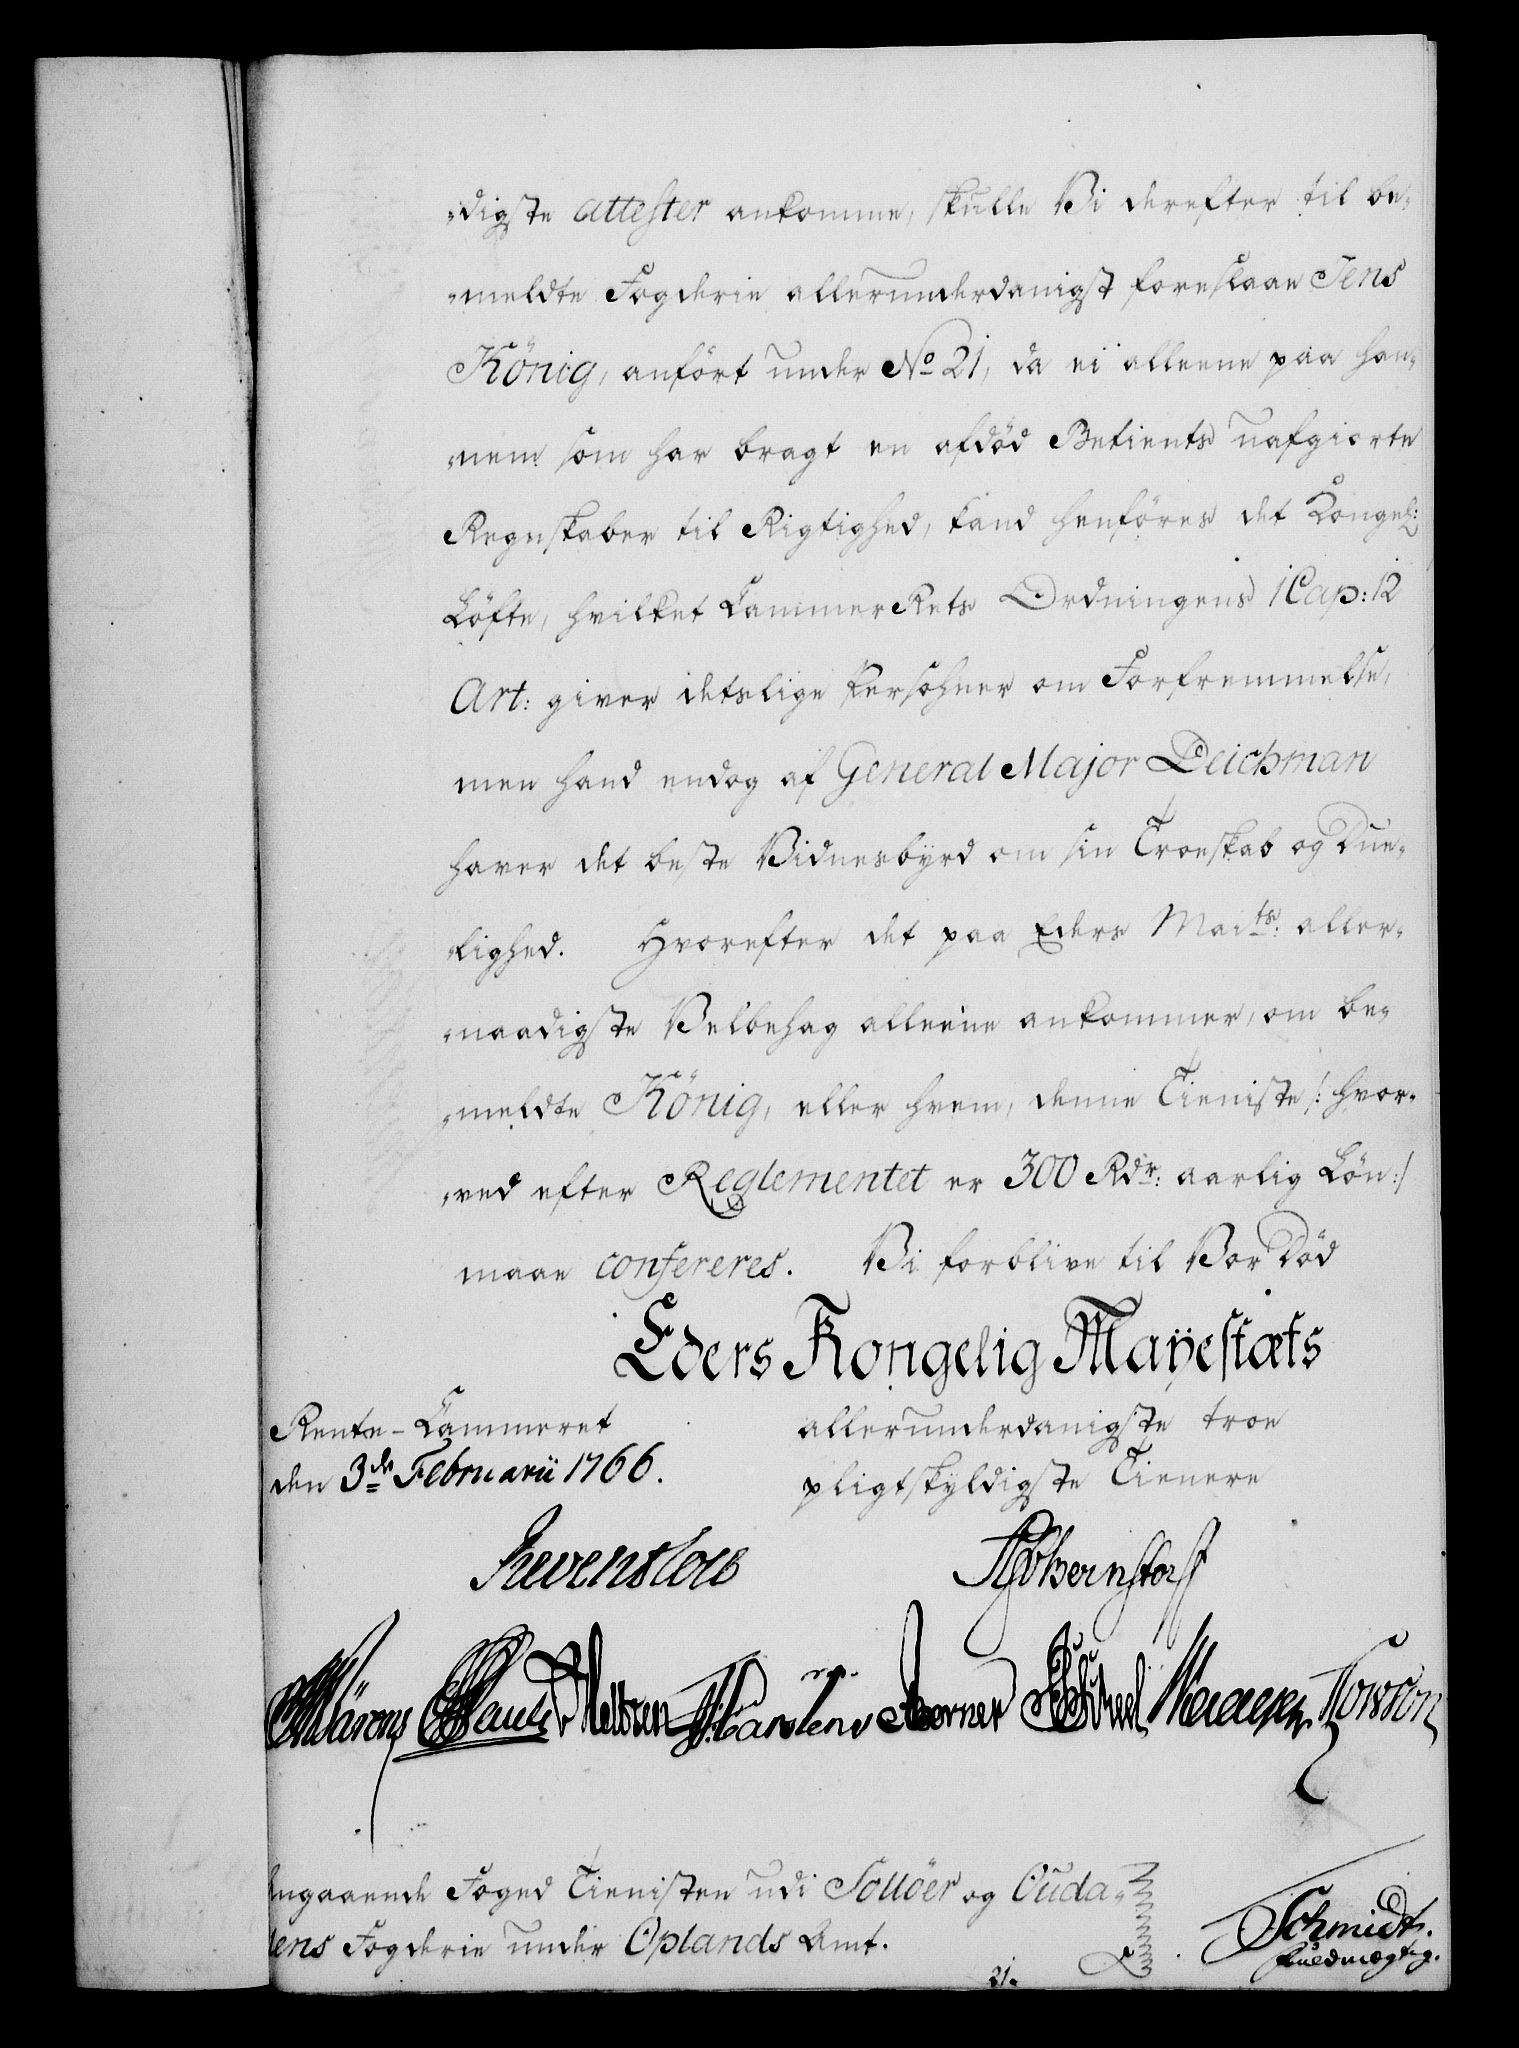 „digste attester ankomme, skulle Vi derefter til be„
„meldte Fogderie allerunderdanigst foreslaae Jens
König, anført under No 21, da ei alleene paa han„
„nem som har bragt en afdød Betients uafgiorte
Regnskaber til Rigtighed, kand henføres det Kongel:
Løfte, hvilket Cammer Rets Ordningens 1 Cap: 12
Art: giver detslige Persohner om Forfremmelse,
men hand endog af General Major Deichman
haver det beste Vidnesbyrd om sin Troeskab og Due„
„lighed. Hvorefter det paa Eders Maits: aller„
„naadigste Velbehag alleene ankommer, om be„
„meldte König, eller hvem, denne Tieniste /: hvor„
„ved efter Reglementet er 300 Rdr: aarlig Løn :/
maae confereres. Vi forblive til Vor Död
Eders Kongelig Mayestæts
Rente-Cammeret
den 3de Februarii 1766.
allerunderdanigste troe
pligtskyldigste Tienere
Reventlow
Bernstorff
Schmidt.
Fuldmægtig.
Angaaende Foged Tienisten udi Solløer og Ouda„
lens Fogderie under Oplands Amt.
21.